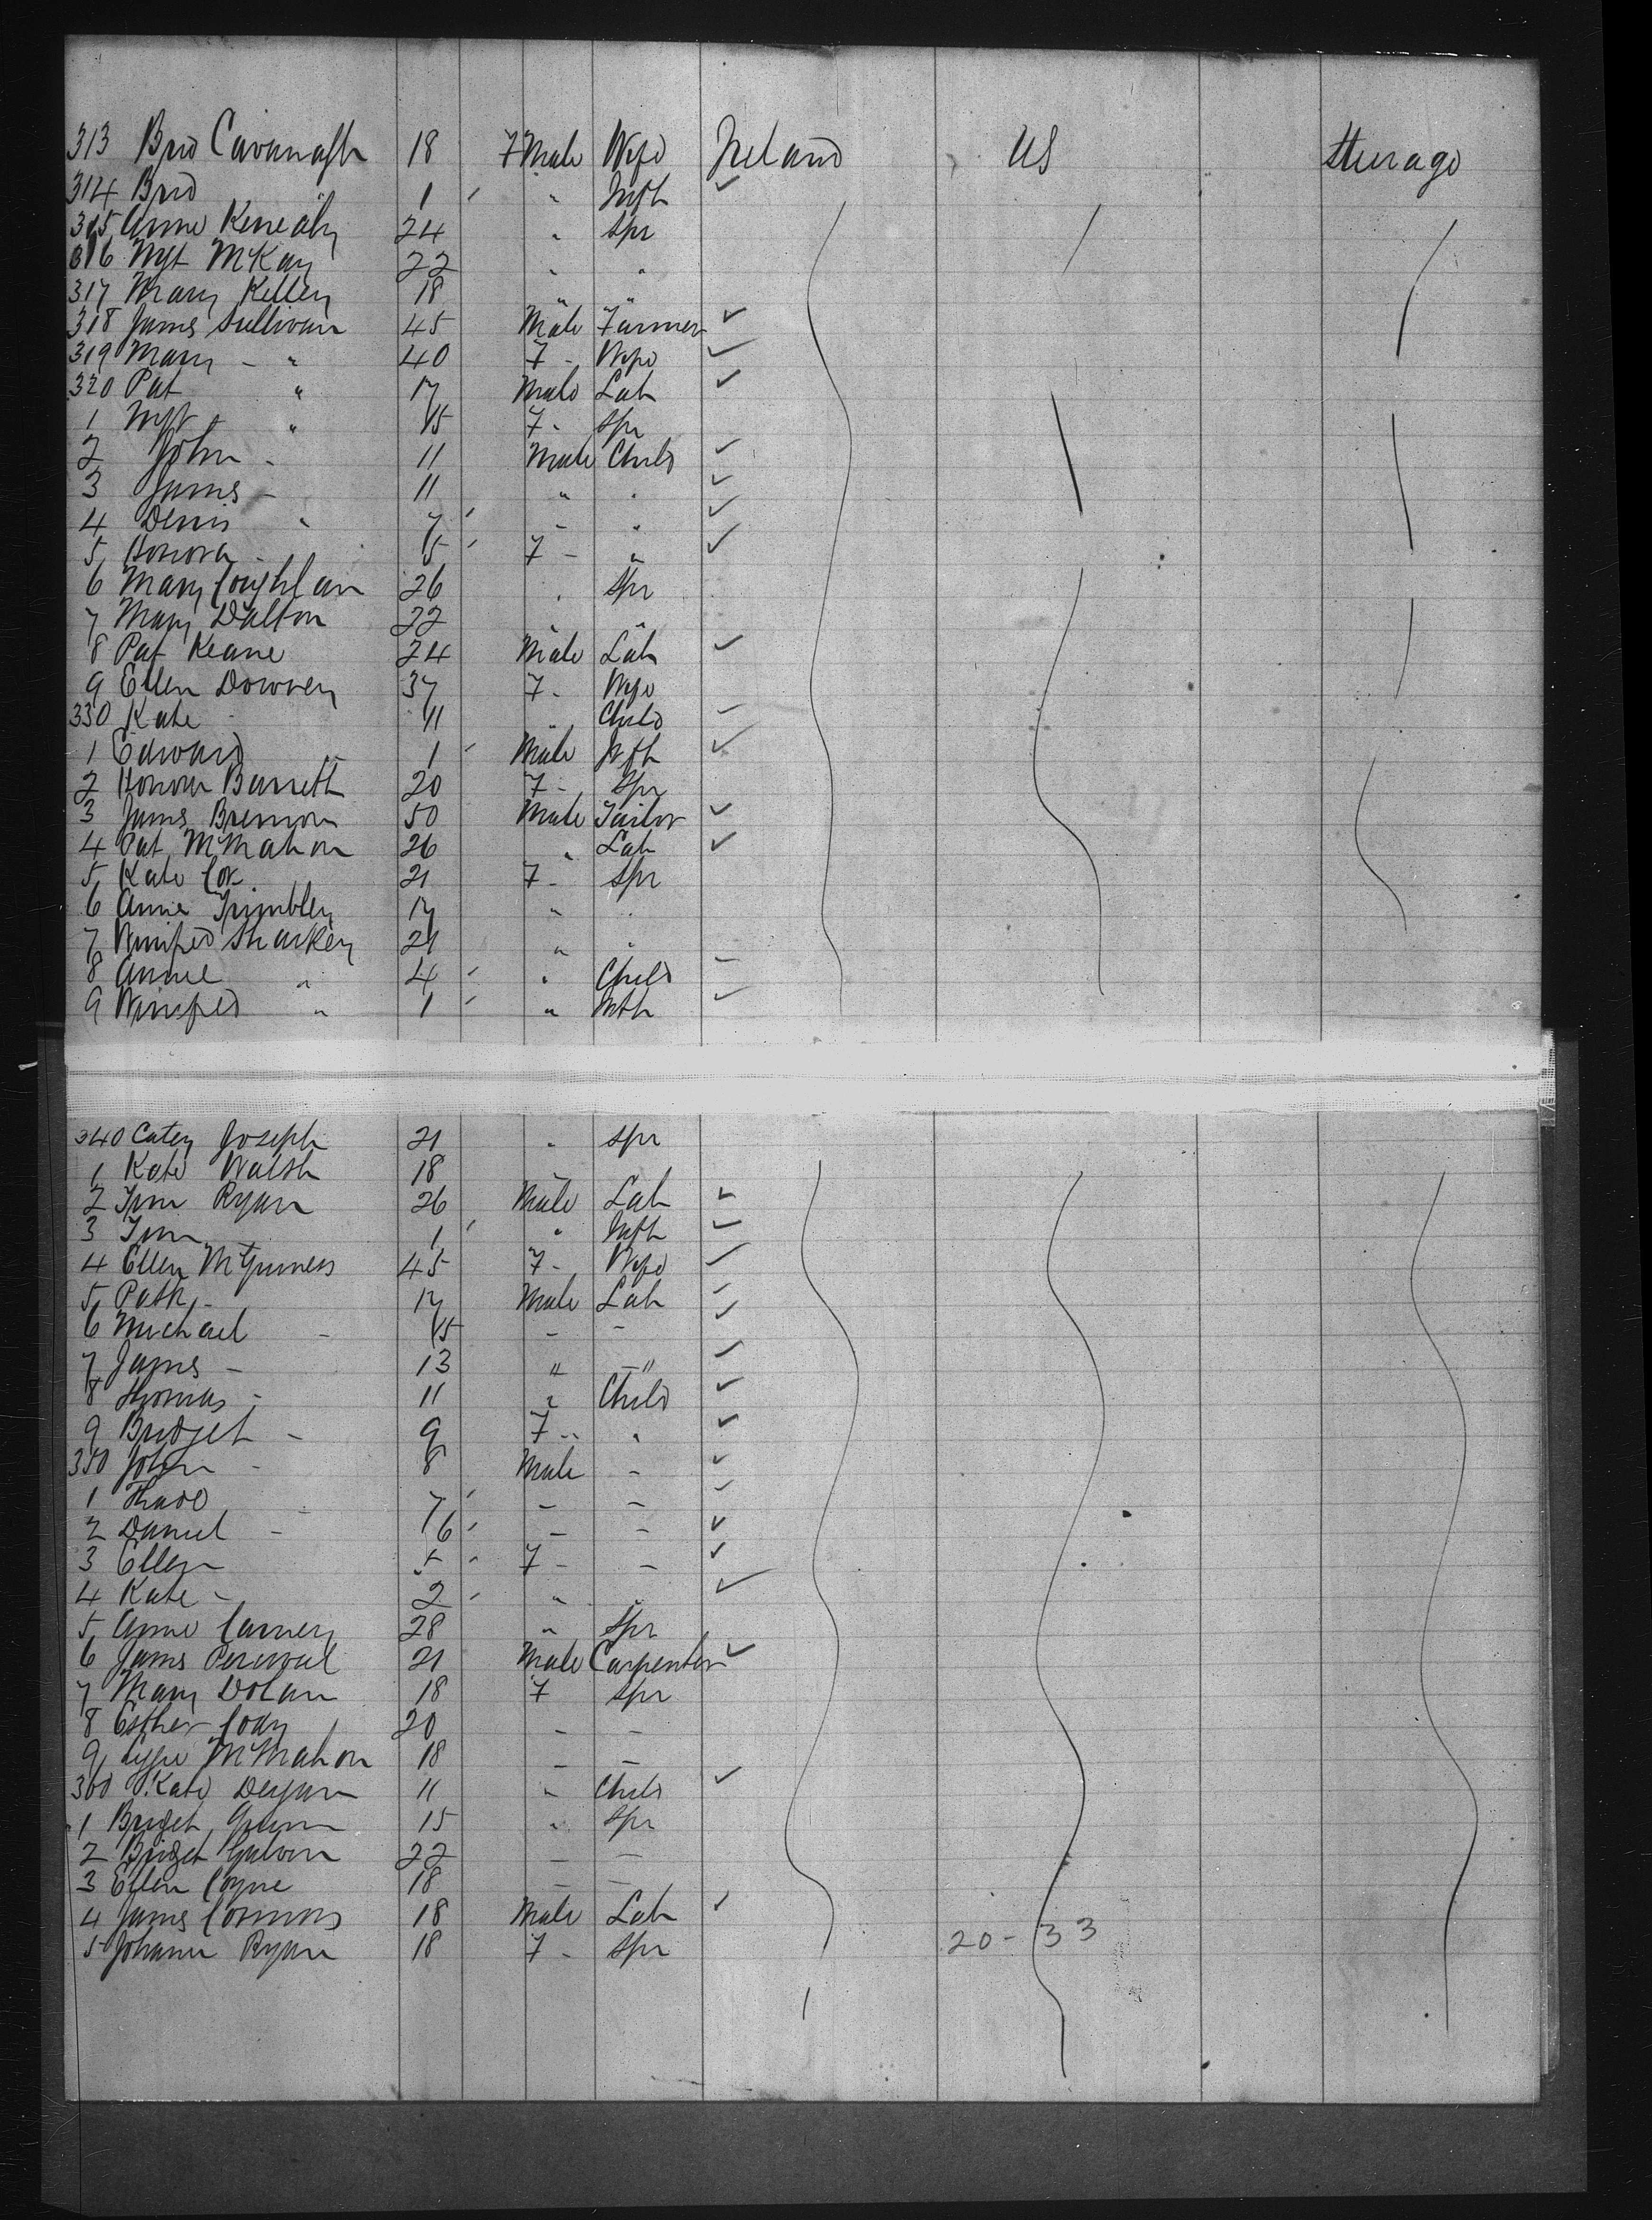 313 Brid Cavanagh 18 7Male Wife Ireland US Steerage
314 Brid 1 " Infth
315 Anne Kenealy 24 " Spr
316 Mgt McKay 22 " "
317 Mary Kelley 18 " "
318 James Sullivan 45 Male Farmer
319 Mary - " 40 7 - Wife
320 Pat " 17 Male Lab
1 Mgt " 15 7 - Spr
2 John - 11 Male Child
3 James - 11 " "
4 Denis " 7 - "
5 Honora - 5 7 - "
6 Mary Coughlan 26 " Spr
7 Mary Dalton 22 " "
8 Pat Keane 24 Male Lab
9 Ellen Downey 37 7 - Wife
330 Kate - 11 " Child
1 Edward - 1 Male Infth
2 Honour Barrett 20 7 - Spr
3 James Brennan 50 Male Tailor
4 Pat McMahon 26 " Lab
5 Kate Cox 21 7 - Spr
6 Annie Trimbley 17 " "
7 Winifred Sharkey 21 " "
8 Annie " 4 " Child
9 Winifred " 1 " Infth
340 Catey Joseph 21 " Spr
1 Kate Walsh 18 " "
2 Tim Ryan 26 Male Lab
3 Tim - 1 " Infth
4 Ellen McGuiness 45 7 - Wife
5 Patk - 17 Male Lab
6 Michael - 15 - -
7 James - 13 " - "
8 Thomas - 11 " Child
9 Bridget - 9 7 - "
350 John - 8 Male -
1 Thade 7 - -
2 Daniel - 6 - -
3 Ellen 5 7 - -
4 Kate - 2 " "
5 Anne Carney 28 " Spr
6 James Percival 21 Male Carpenter
7 Mary Dolan 18 7 Spr
8 Esther Cody 20 - -
9 McMahon 18 - -
360 Kate 11 " Child
1 Bridget 15 " Spr
2 Bridget Galvin 22 - -
3 Ellen Coyne 18 - -
4 James Connors 18 Male Lab
5 Johanna Ryan 18 7 - Spr 20 - 33